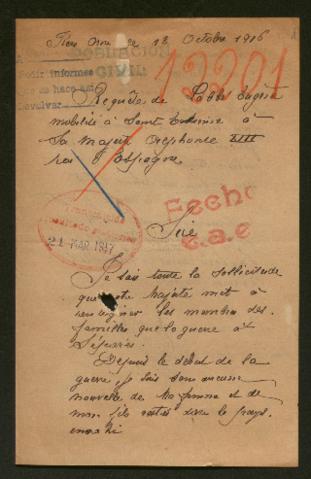 le 18 Octobre 1916
POBLACION
CIVIL
Pedir informes
que se hace
devolver
13201
Requête de Eugène
mobilisé à Saint Etienne à
Sa Majesté Alphonse XIII
roi d'Espagne
Fecho
21 MAR 1917
Sire
Je sais toute la sollicitude
que votre Majesté met à
renseigner les membres des
familles que la guerre à
séparés.
Depuis le début de la
guerre je suis sans aucune
nouvelle de ma femme et de
mon fils restés dans le pays
envahi